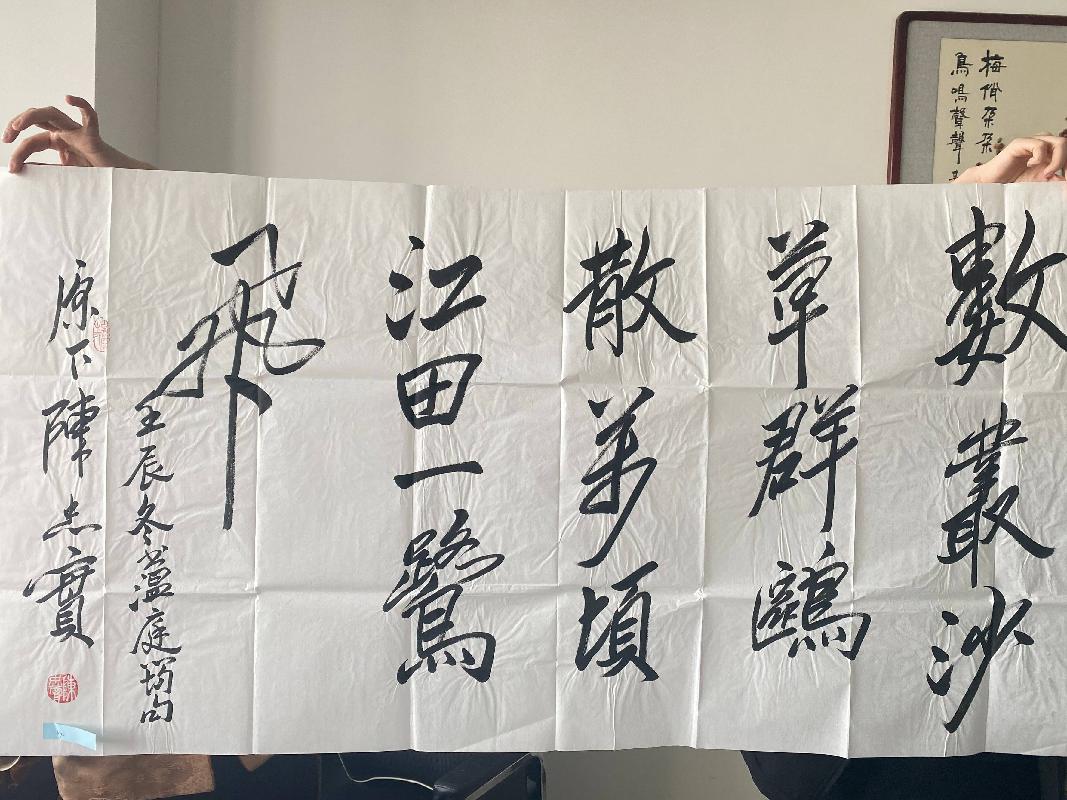 數叢沙
草群鷗
散萬頃
江田一鷺
飛
壬辰冬溫庭筠句
原下陳忠實
梅俏朵朵
鳥鳴聲聲